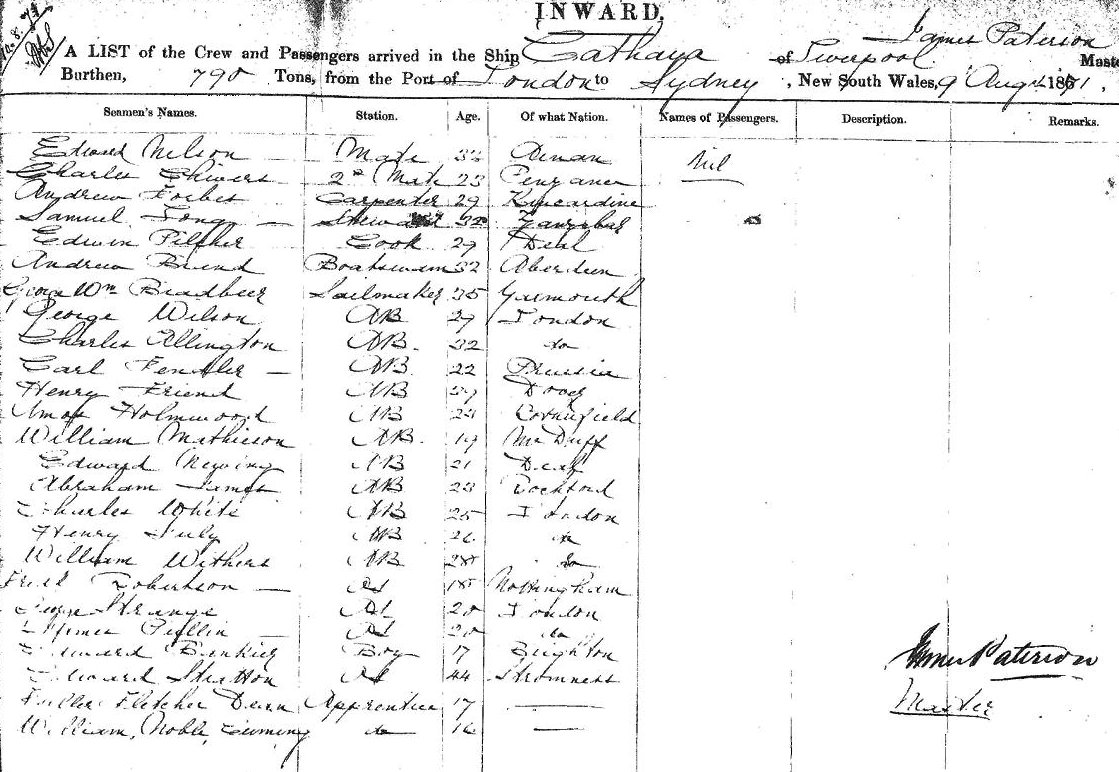 INWARD.
James Paterson
A LIST of the Crew and Passengers arrived in the Ship Cathaya of Liverpool Maste
Burthen, 790 Tons, from the Port of London to Sydney, New South Wales, 9 Augt 1871.
Seamen's Names. Station. Age. Of what Nation. Names of Passengers. Description. Remarks.
Edward Nelson Mate Annan Nil
Charles Chivers 2nd Mate 23 Penzance
Andrew Forbes Carpenter 29 Kincardine
Samuel Long Steward 32 Zanzibar
Edwin Pilcher Cook 29 Deal
Andrew Boatswain 32 Aberdeen
George Wm Bradbeer Sailmaker 35 Yarmouth
George Wilson AB 29 London
Charles Allington AB. 32 do
Carl AB 22 Prussia
Henry Friend AB Dover
Amos Holmwood AB
William Mathieson AB. 19 McDuff
Edward Newing AB 21 Deal
Abraham James AB 23
Charles White AB 25 London
Henry July AB 26 do
William Withers AB 28 do
Fredk Robertson OS 18 Nottingham
George Strange OS 20 London
James OS 20 do
Edward Boy 17 Brighton
Edward Stratton OS 44 Stromness
Fuller Fletcher Apprentice 17
William Noble do 16
James Paterson
Master